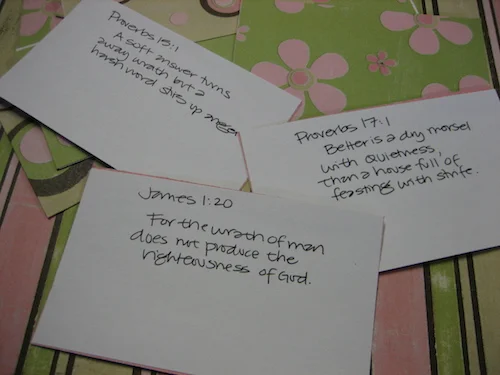 Proverbs 15:1
A soft answer turns
away wrath but a
harsh word stirs up anger
Proverbs 17:1
Better is a dry morsel
with quietness,
than a house full of
feasting with strife.
James 1:20
For the wrath of man
does not produce the
righteousness of God.